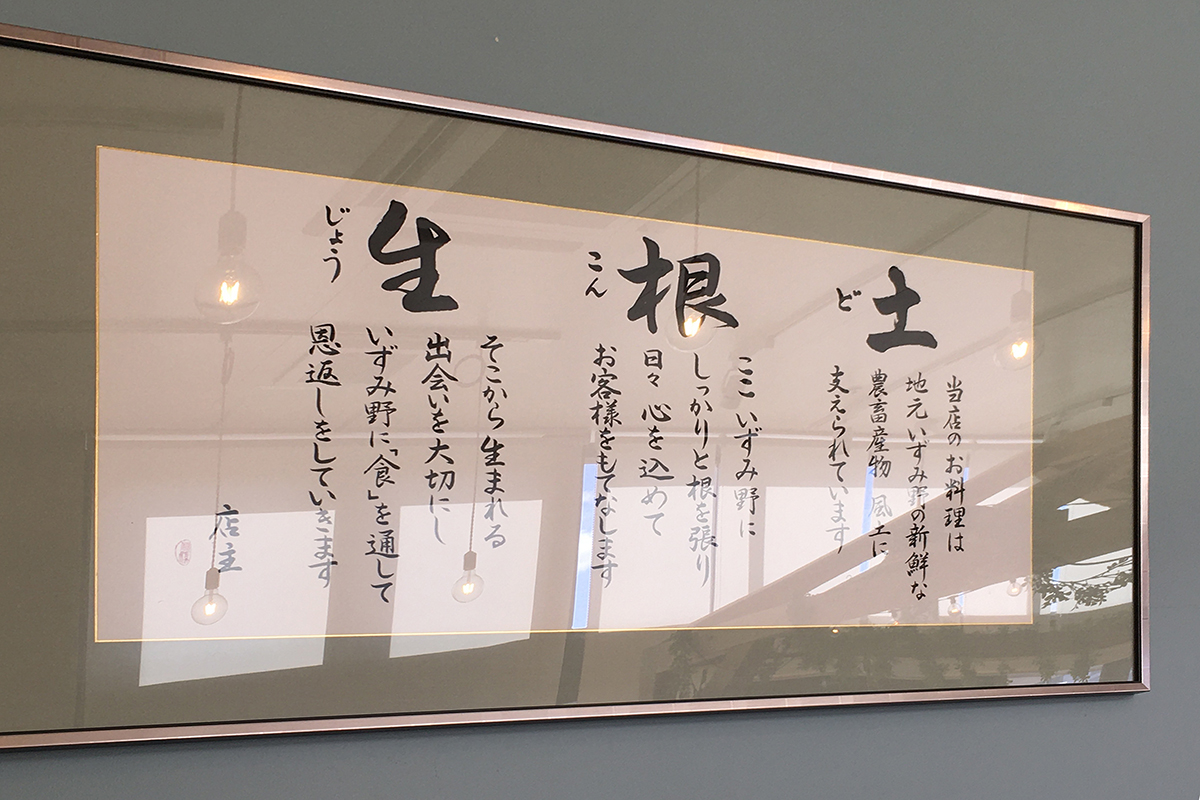 土
ど
当店のお料理は
地元いずみ野の新鮮な
農畜産物 風土に
支えられています
根
こん
ここいずみ野に
しっかりと根を張り
日々心を込めて
お客様をもてなします
生
じょう
そこから生まれる
出会いを大切にし
いずみ野に「食」を通して
恩返しをしていきます
店主